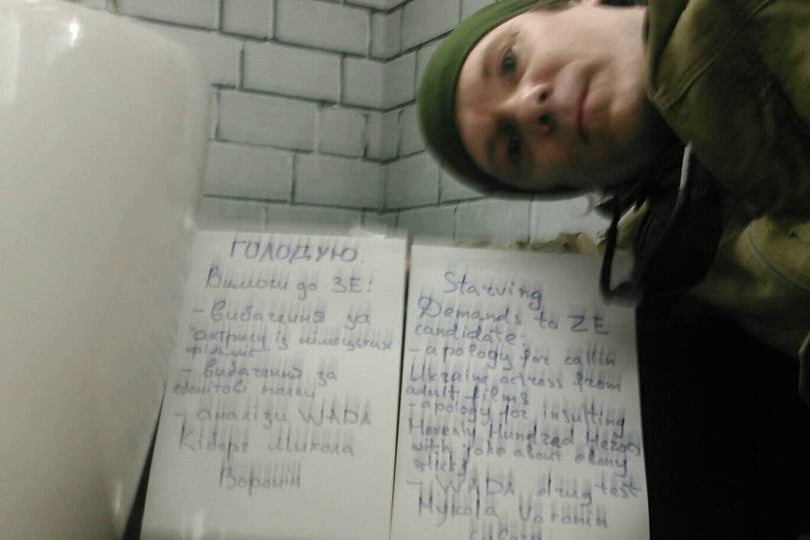 ГОЛОДУЮ.
Вимоги до ЗЕ:
- вибачення за
"актрису із німецьких
фільмів"
- вибачення за
ебонітові палки
- аналізи WADA
Кіборг Микола
Воронін
Starving
Demands to ZE
candidate:
- apology for callin
Ukraine actress from
adult films
- apology for insulting
Hevenly Hundred Heroes
with joke about ebony
sticks
- WADA drug test
Mykola Voronin
cyborg